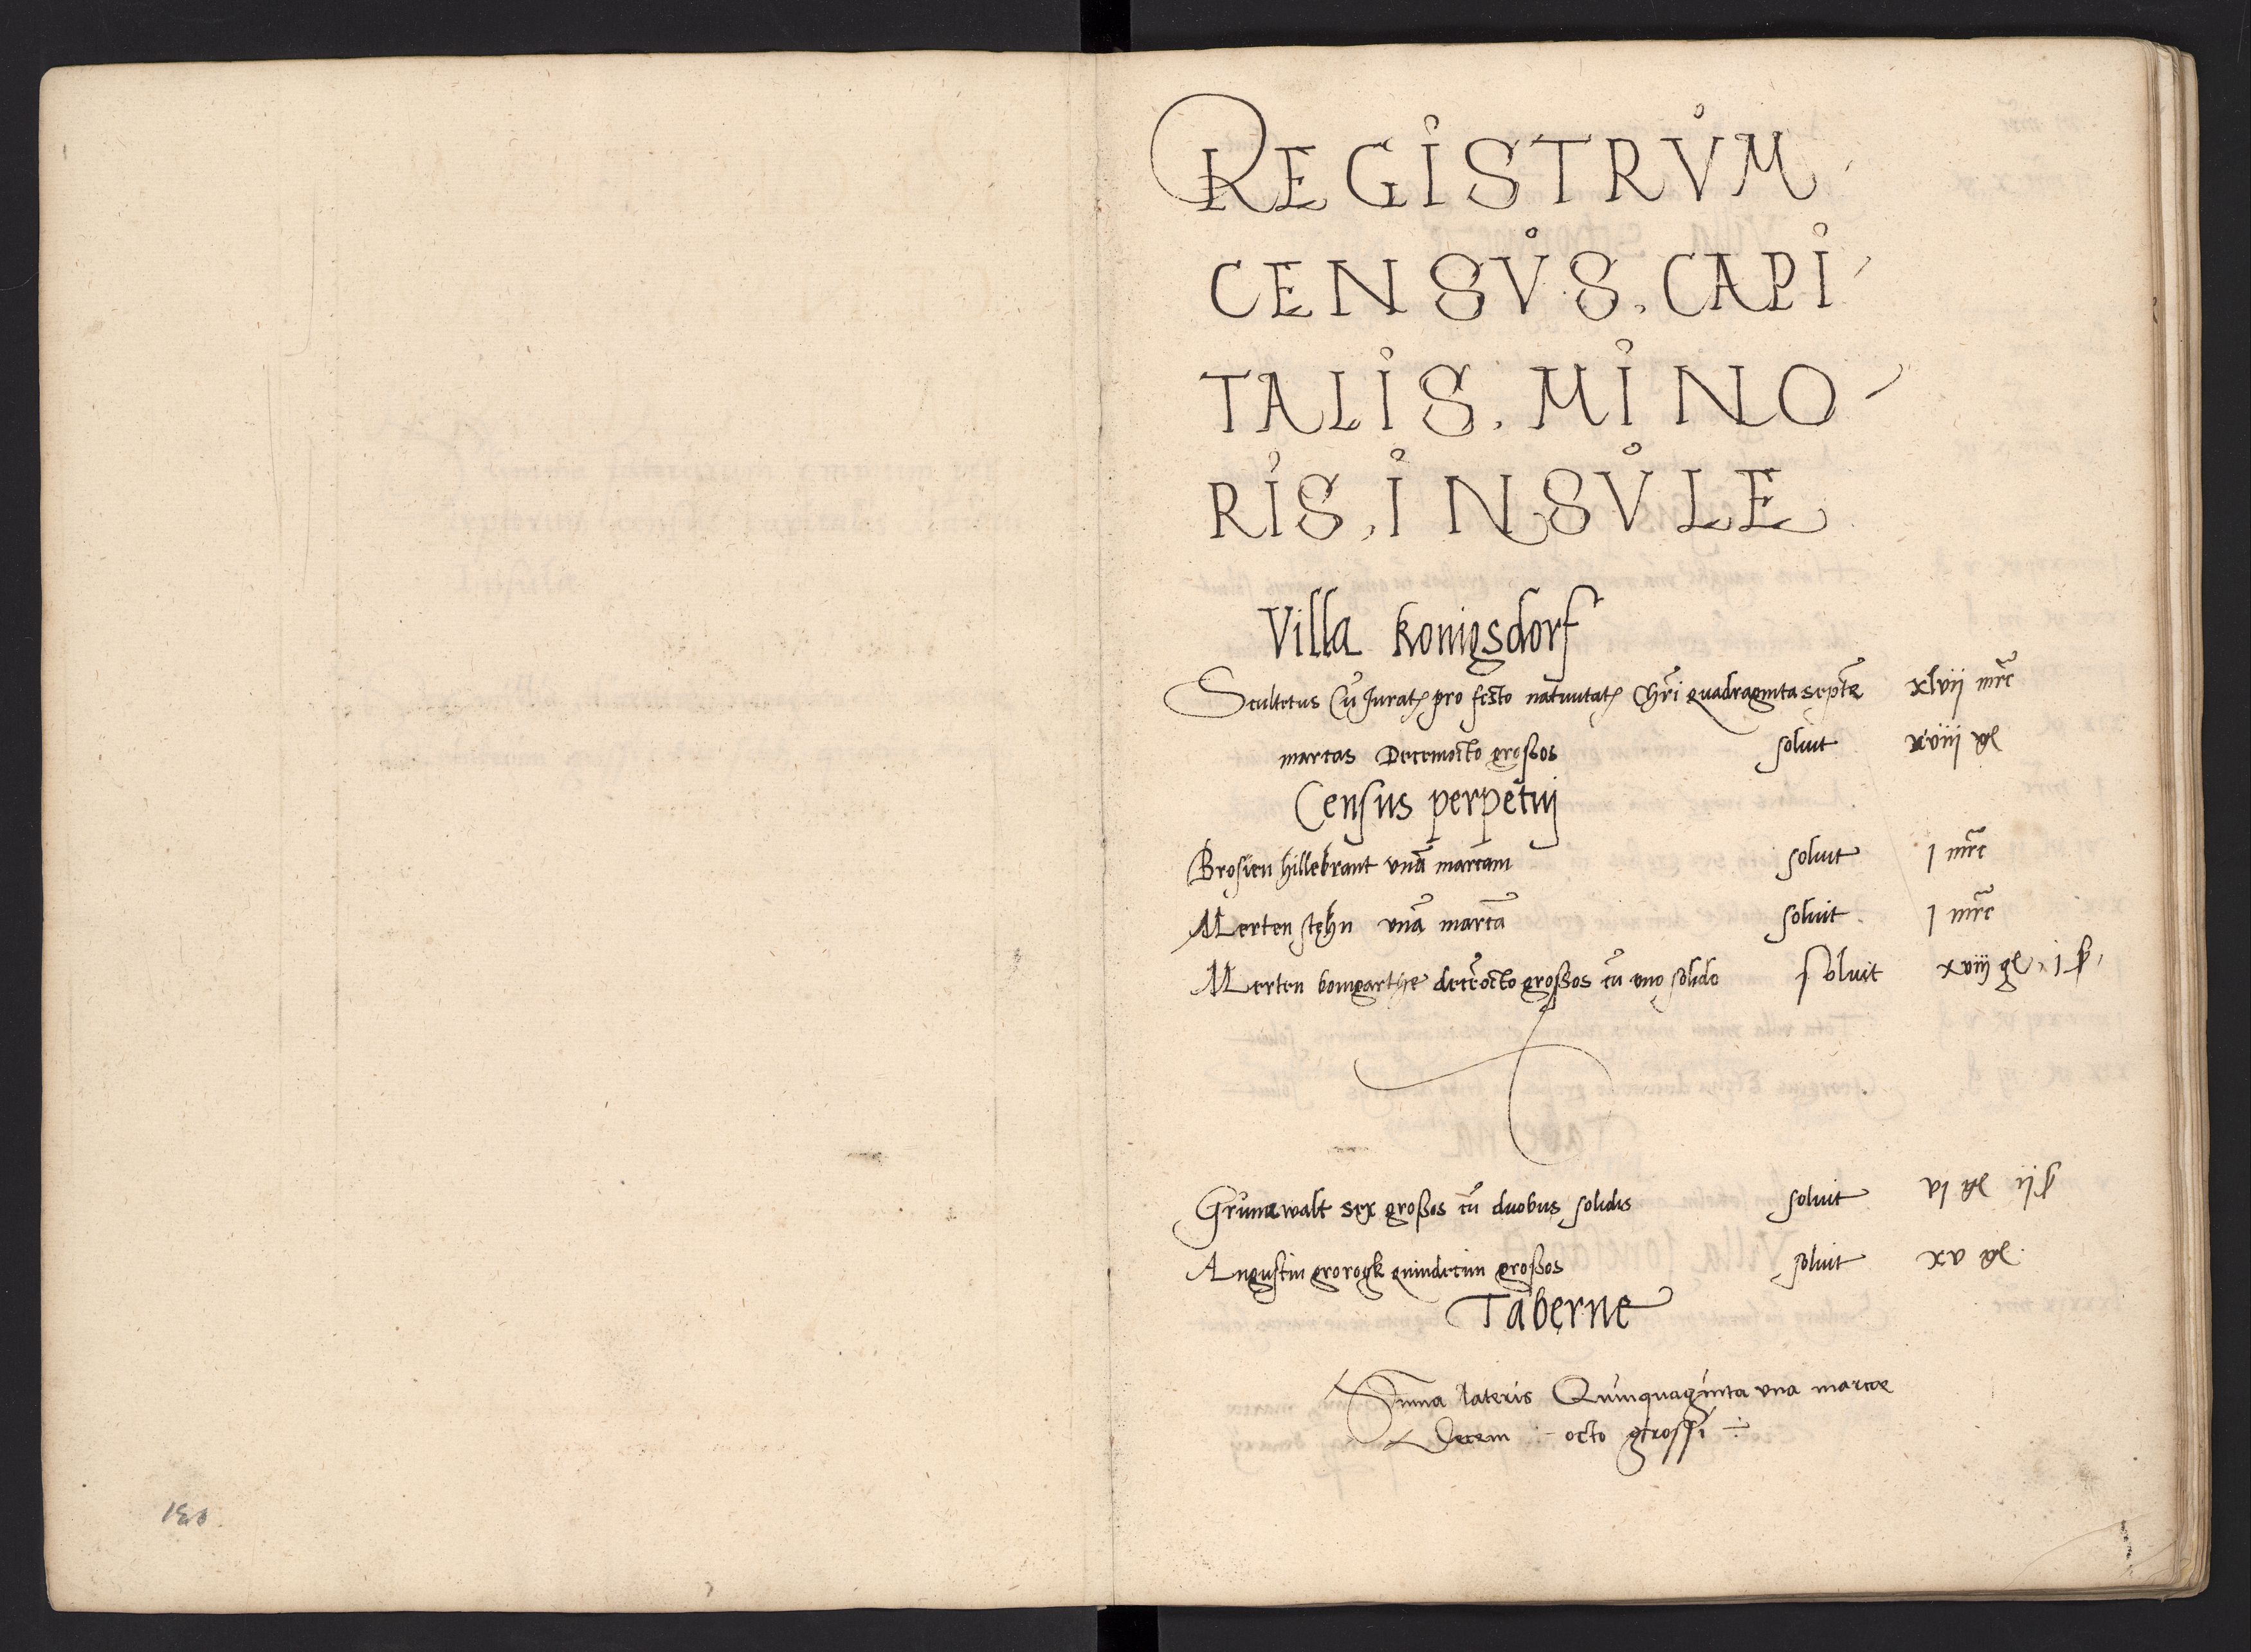 REGISTRVM
CENSVS. CAPI
TALIS. MINO
RIS. INSVLE
Villa konigsdorf
Scultetus Cũ Juratꝭ pro festo natiuitatꝭ Chr̃i quadraginta septẽ xlvij mrc̃
marcas Decemocto großos soluit xviij gl
Census perpetuj
Brosien hillebrant vnã marcam soluit j mrc̃
Merten stehn vnã marcã soluit j mrc̃
Merten bomgarthe decẽocto großos cũ vno solido soluit xviij gl j ß
Grunewalt sex großos cũ duobus solidis soluit vj gl ij ß
Augustin grorogk quindecim großos soluit xv gl
Taberne
Sum̃a lateris Quinquaginta vna marcae
Decem octo grossi